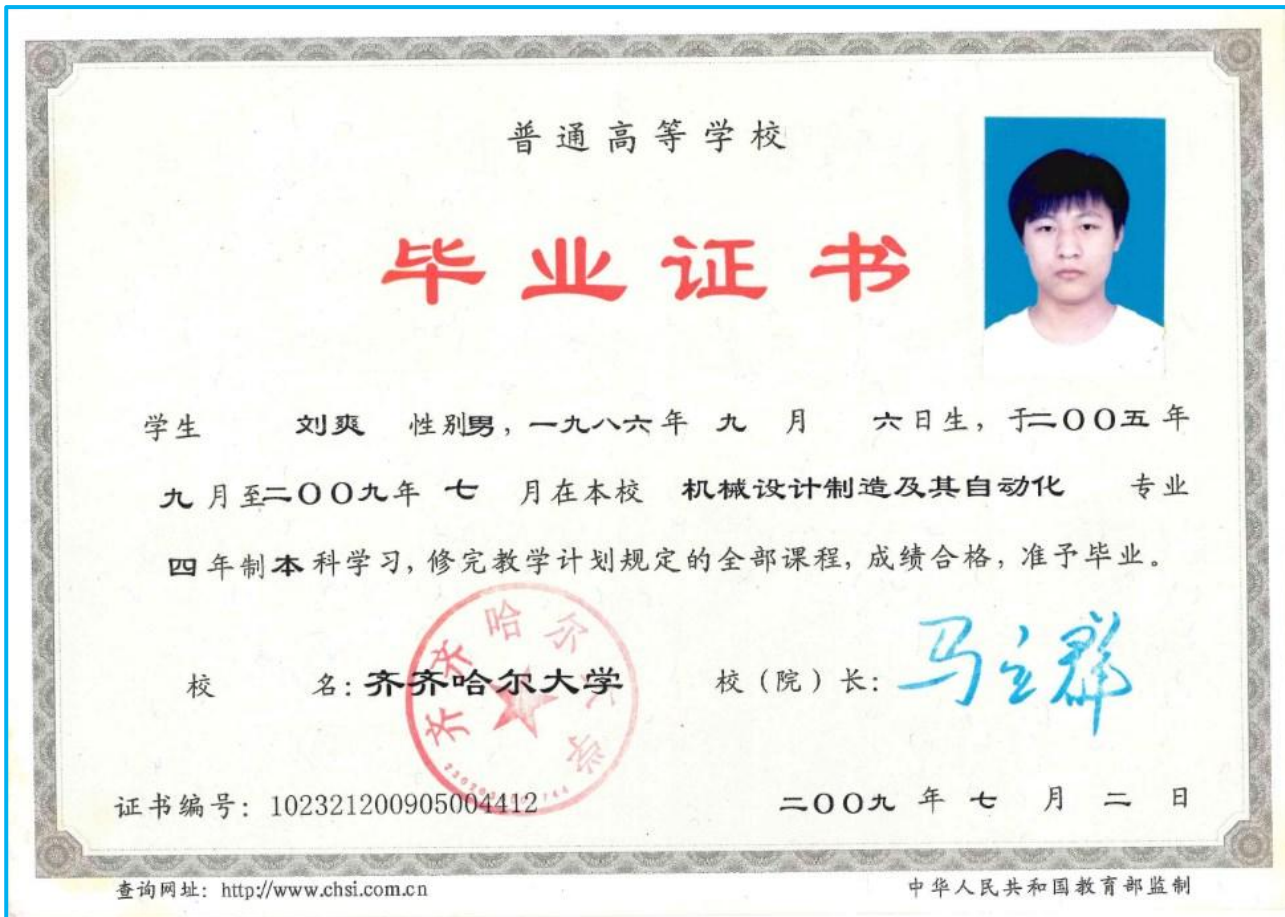 普通高等学校
毕业证书
学生 刘爽 性别男，一九八六年 九 月 六日生，于二〇〇五年
九月至二〇〇九年 七 月在本校 机械设计制造及其自动化 专业
四年制本科学习，修完教学计划规定的全部课程，成绩合格，准予毕业。
齐齐哈尔大学
校 名：齐齐哈尔大学 校（院）长：马立群
证书编号：102321200905004412 二〇〇九 年 七 月 二 日
查询网址：http://www.chsi.com.cn 中华人民共和国教育部监制